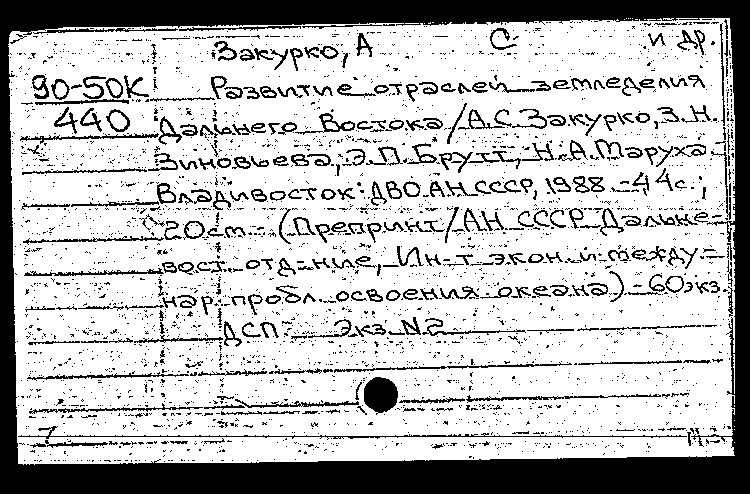 Закурко, А С и др.
90-50К Развитие отраслей земледелия
440 Дальнего Востока/А.С.Закурко, З.Н.
Зиновьева, Э.П.Брутт, Н.А.Маруха.-
Владивосток: ДВО АН СССР, 1988.-44с.;
20см.- (Препринт/АН СССР Дальне=
вост. отд-ние, Ин-т экон. и между=
нар. пробл. освоения океана)-60экз.
ДСП- Экз. N2
7 М.З.